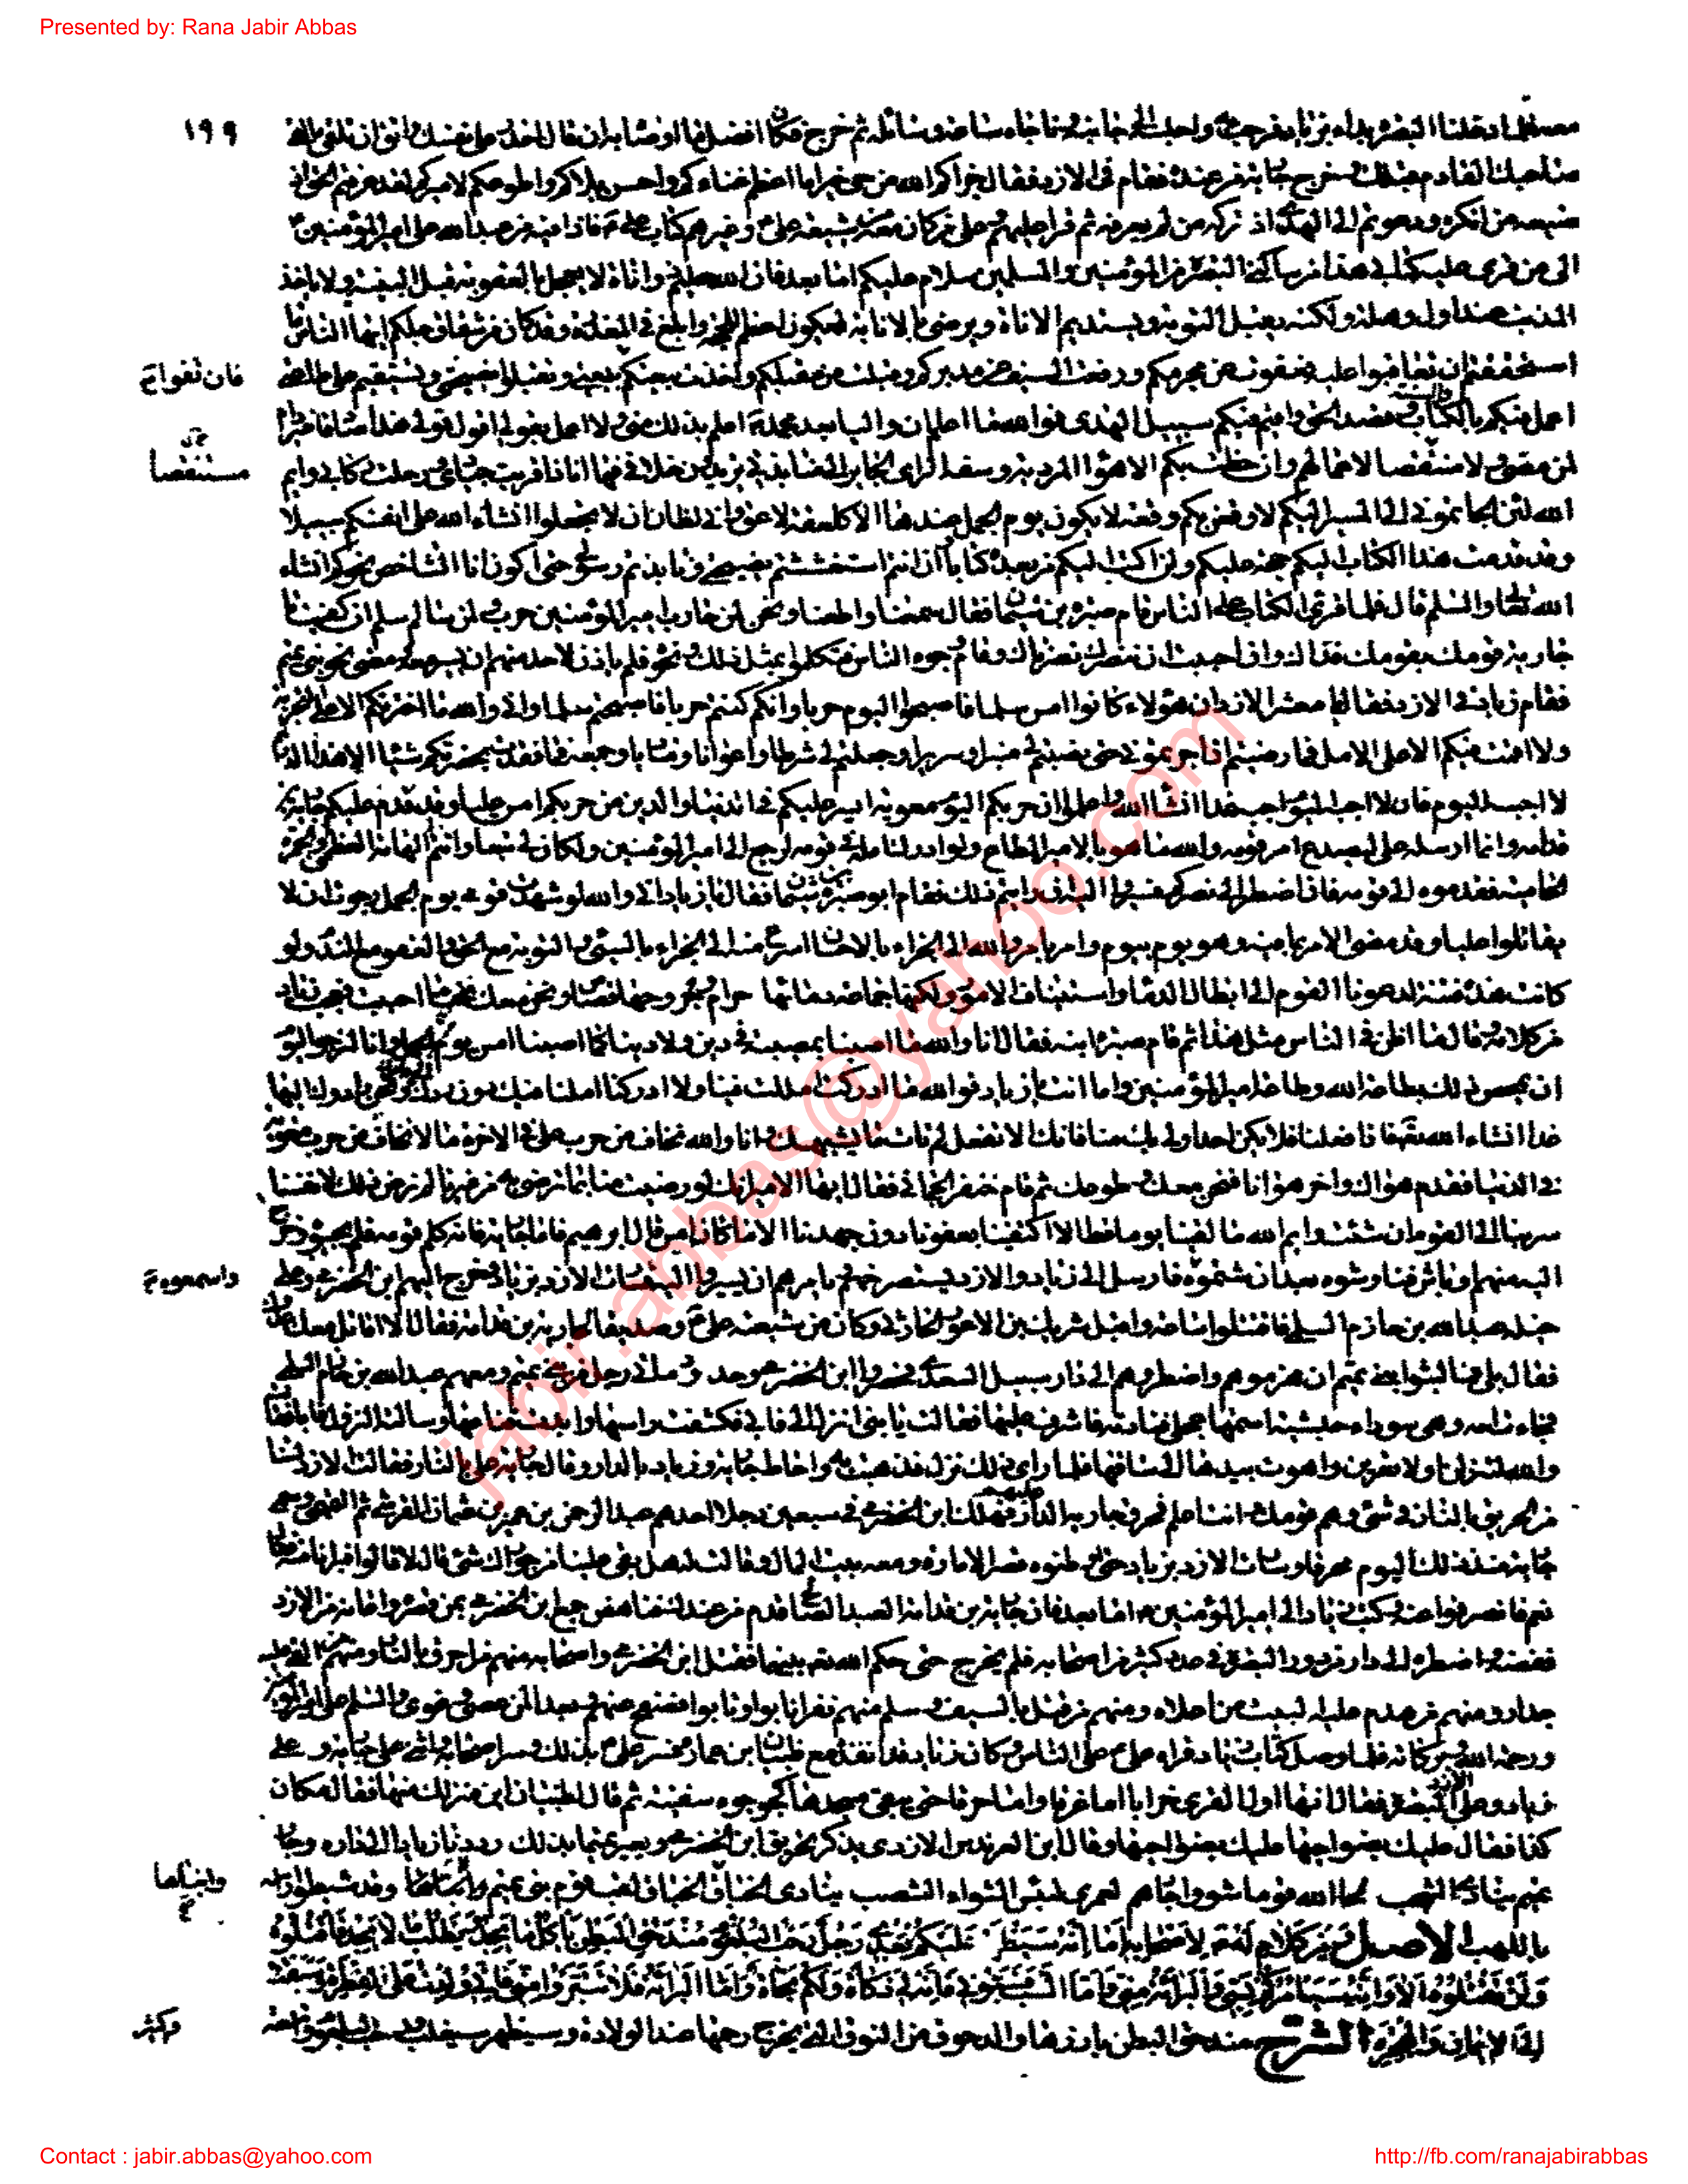 Presented by: Rana Jabir Abbas
١٩٩
فلما دخلنا البصرة بدأ بزياد فرحب به واجلسه الى جانبه وناجاه ساعة وسائله ثم خرج فكان افضل ما اوصاه به ان قال احذر على نفسك واتق ان تلقى ما لقى
صاحبك القادم قبلك وخرج جارية من عنده فقام في الازد فقال جزاكم الله من حي خيرا ما اعظم غناءكم واحسن بلاءكم واطوعكم لاميركم لقد عرفتم الحق اذ
ضيعه من انكره ودعوتم الى الهدى اذ تركه من لم يعرفه ثم قرأ عليهم وعلى من كان معه من شيعة علي وغيرهم كتاب علي فاذا فيه من عبد الله علي امير المؤمنين
الى من قرئ عليه كتابي هذا من ساكني البصرة من المؤمنين والمسلمين سلام عليكم اما بعد فان الله حليم ذو اناة لا يعجل بالعقوبة قبل البينة ولا ياخذ
المذنب عند اول وهلة ولكنه يقبل التوبة ويستديم الاناة ويرضى بالانابة ليكون اعظم للحجة وابلغ في المعذرة وقد كان من شقاق جلكم ايها الناس ما
استحققتم ان تعاقبوا عليه فعفوت عن مجرمكم ورفعت السيف عن مدبركم وقبلت من مقبلكم واخذت بيعتكم
فان تفوا
اعمل فيكم بالكتاب وقصد الحق واقم فيكم سبيل الهدى فوالله ما اعلم ان واليا بعد محمد اعلم بذلك مني ولا اعمل بقولي اقول قولي هذا صادقا غير ذام
لمن مضى ولا منتقصا لاعمالهم وان خطت بكم الاهواء المردية وسفه الراي الجائر الى منابذتي تريدون خلافي فها انا ذا قربت جيادي ورحلت ركابي وايم
منتقصا
الله لئن الجأتموني الى المسير اليكم لاوقعن بكم وقعة لا يكون يوم الجمل عندها الا كلعقة لاعق واني لظان ان لا تجعلوا انشاء الله على انفسكم سبيلا
وقد قدمت هذا الكتاب اليكم حجة عليكم ولن اكتب اليكم من بعده كتابا ان انتم استغششتم نصيحتي ونابذتم رسولي حتى اكون انا الشاخص نحوكم انشاء
الله تعالى والسلم قال فلما قرئ الكتاب على الناس قام صبرة بن شيمان فقال سمعنا واطعنا ونحن لمن حارب امير المؤمنين حرب ولمن سالم سلم ان كفيت يا
جارية قومك بقومك فذاك وان احببت ان ننصرك نصرناك وقام وجوه الناس فتكلموا بمثل ذلك ونحوه فلم ياذن لاحد منهم ان يسير معه ومضى نحو بني تميم
فقام زياد في الازد فقال يا معشر الازد ان هؤلاء كانوا امس سلما فاصبحوا اليوم حربا وانكم كنتم حربا فاصبحتم سلما واني والله ما اخترتكم الا على التجربة
ولا اقمت فيكم الا على الامل فما رضيتم ان اجرتموني حتى نصبتم لي منبرا وسريرا وجعلتم لي شرطا واعوانا ومناديا وجمعة فما فقدت بحضرتكم شيئا الا هذا الدرهم
لا اجبيه اليوم فان لا اجبه اليوم اجبه غدا انشاء الله واعلموا ان حربكم اليوم معوية ايسر عليكم في الدنيا والدين من حربكم امس عليا وقد قدم عليكم جارية بن
قدامة وانما ارسله علي ليصدع امر قومه والله ما هو بالامير المطاع ولو ادرك امله في قومه لرجع الى امير المؤمنين ولكان لي تبعا وانتم الهامة العظمى والجمرة
الحامية فقدموه الى قومه فان اضطر الى نصركم فسيروا اليه ان رايتم ذلك فقام ابو صبرة شيمان فقال يا زياد اني والله لو شهدت قومي يوم الجمل رجوت ان لا
يقاتلوا عليا وقد مضى الامر بما فيه وهو يوم بيوم وامر بامر والله الى الجزاء بالاحسان اسرع منه الى الجزاء بالسيئ والتوبة مع الحق والعفو مع الندم ولو
كانت هذه فتنة لدعونا القوم الى ابطال الدماء واستيناف الامور ولكنها جماعة دماؤها حرام وجروحها قصاص ونحن معك نحب ما احببت فعجب زياد
من كلامه وقال ما اظن في الناس مثل هذا ثم قام صبرة ابنه فقال انا والله ما اصبنا بمصيبة في دين ولا دنيا كما اصبنا امس يوم الجمل وانا لنرجو اليوم
ان يمحص ذلك بطاعة الله وطاعة امير المؤمنين واما انت يا زياد فوالله ما ادركت املك فينا ولا ادركنا املنا فيك دون ردك الى دارك ونحن رادوك اليها
غدا انشاء الله تعالى فاذا فعلنا فلا يكن احد اولى بك منا فانك الا تفعل لم تات ما يشبهك وانا والله نخاف من حرب علي في الاخرة ما لا نخاف من حرب معوية
في الدنيا فقدم هواك واخر هوانا فنحن معك وطوعك ثم قام خنفر الحماني فقال ايها الامير انك لو رضيت منا بما ترضى به من غيرنا لم نرض ذلك لانفسنا
سر بنا الى القوم ان شئت وايم الله ما لقينا يوما قط الا اكتفينا بعفونا دون جهدنا الا ما كان امس قال ابرهيم فاما جارية فانه كلم قومه فلم يجيبوه وخرج
اليه منهم اوباش فناوشوه بعد ان شتموه فارسل الى زياد والازد يستصرخهم ويامرهم ان يسيروا اليه فسارت الازد بزياد وخرج اليهم ابن الحضرمي وعلى
واسمعوه
خيله عبد الله بن حازم السلمي فاقتتلوا ساعة واقبل شريك بن الاعور الحارثي وكان من شيعة علي وصديقا لجارية بن قدامة فقال الا اقاتل معك عدوك
فقال بلى فما لبثوا بني تميم ان هزموهم واضطروهم الى دار سبيل السعدي فحصروا ابن الحضرمي وحد ومائتي رجل من بني تميم ومعهم عبد الله بن حازم السلمي
فجاءت امه وهي سوداء حبشية اسمها عجلى فنادته فاشرف عليها فقالت يا بني انزل الي فابى فكشفت راسها وابدت قناعها وسالته النزول فابى فقالت
والله لتنزلن او لاتعرين واهوت بيدها الى ثيابها فلما راى ذلك نزل فذهبت به واحاط جارية وزياد بالدار وقال جارية علي بالنار فقالت الازد لسنا
من الحريق بالنار في شئ وهم قومك وانت اعلم فحرق جارية الدار عليهم فهلك ابن الحضرمي في سبعين رجلا احدهم عبد الرحمن بن عمير بن عثمان القرشي ثم التيمي وسمي
جارية منذ ذلك اليوم محرقا وسارت الازد بزياد حتى اوطنوه قصر الامارة ومعه بيت المال وقالت له هل بقي علينا من جوارك شئ قال لا قالوا فبرئنا منه قال
نعم فانصرفوا عنه وكتب زياد الى امير المؤمنين اما بعد فان جارية بن قدامة العبد الصالح قدم من عندك فناهض جمع ابن الحضرمي بمن نصره واعانه من الازد
ففضه واضطره الى دار من دور البصرة في عدد كثير من اصحابه فلم يخرج حتى حكم الله تعالى بينهما فقتل ابن الحضرمي واصحابه منهم من احرق بالنار ومنهم من القي عليه
جدار ومنهم من هدم عليه البيت من اعلاه ومنهم من قتل بالسيف وسلم منهم نفر انابوا وتابوا فصفح عنهم وبعدا لمن عصى وغوى والسلم على امير المؤمنين
ورحمة الله وبركاته فلما وصل كتاب زياد قراه علي على الناس وكان زياد قد انفذه مع ظبيان بن عمارة فسر علي بذلك وسر اصحابه واثنى على جارية وعلى
زياد وعلى الازد وذم البصرة فقال انها اول القرى خرابا اما غرقا واما حرقا حتى يبقى مسجدها كجوجوء سفينة ثم قال لظبيان اين منزلك منها فقال مكان
كذا فقال عليك بضواحيها عليك بضواحيها وقال ابن العرندس الازدي يذكر تحريق ابن الحضرمي ويعير تميما بذلك رددنا زيادا الى داره وجار
تميم ينادي الشجب لحا الله قوما شووا جارهم لعمري لبئس الشواء الشصب ينادي الخناق
وابناءها
باللهب الاصل ومن كلام له لاصحابه اما انه سيظهر عليكم بعدي رجل رحب البلعوم مندحق البطن ياكل ما يجد ويطلب ما لا يجد فاقتلوه
ولن تقتلوه الا وانه سيامركم بسبي والبراءة مني فاما السب فسبوني فانه لي زكاة ولكم نجاة واما البراءة فلا تتبرؤا مني فاني ولدت على الفطرة وسبقت
الى الايمان والهجرة الشرح مندحق البطن بارزها والدحوق من النوق التي يخرج رحمها عند الولادة وسيظهر سيغلب ورحب البلعوم واسعه
وكثير
jabir.abbas@yahoo.com
Contact : jabir.abbas@yahoo.com
http://fb.com/ranajabirabbas